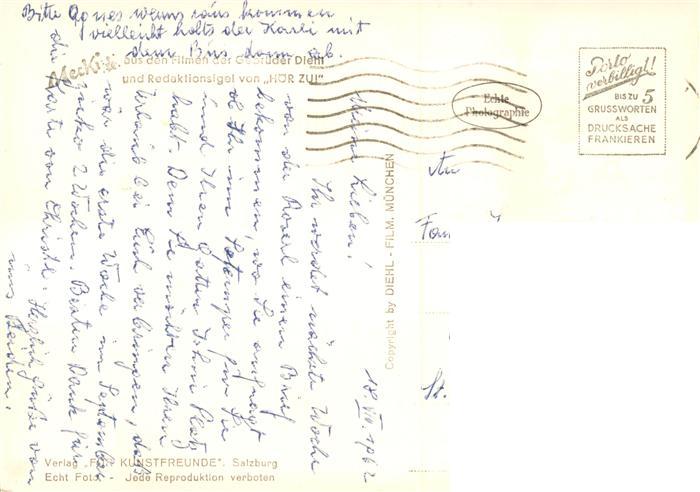 Bitte Agnes wenns raus kommen
vielleicht holts der Karli mit
dem Bus dann ab.
Mecki
aus den Filmen der Gebrüder Diehl
und Redaktionsigel von „HÖR ZU!“
Echte
Photographie
Porto
verbilligt!
BIS ZU 5
GRUSSWORTEN
ALS
DRUCKSACHE
FRANKIEREN
An
Fam
St.
Copyright by DIEHL - FILM. MÜNCHEN
18. VII. 1962
Meine Lieben!
Ihr werdet nächste Woche
von der Roserl einen Brief
bekommen, wo Sie anfragt
ob Ihr im September für Sie
und Ihren Gatten Platz
habt. Denn Sie möchten Ihren
Urlaub bei Euch verbringen, das
wär die erste Woche im September
zirka 2 Wochen. Besten Dank für
die Karte von Christl. Herzliche Grüße von
uns Beiden.
Verlag „FÜR KUNSTFREUNDE“. Salzburg
Echt Foto - Jede Reproduktion verboten